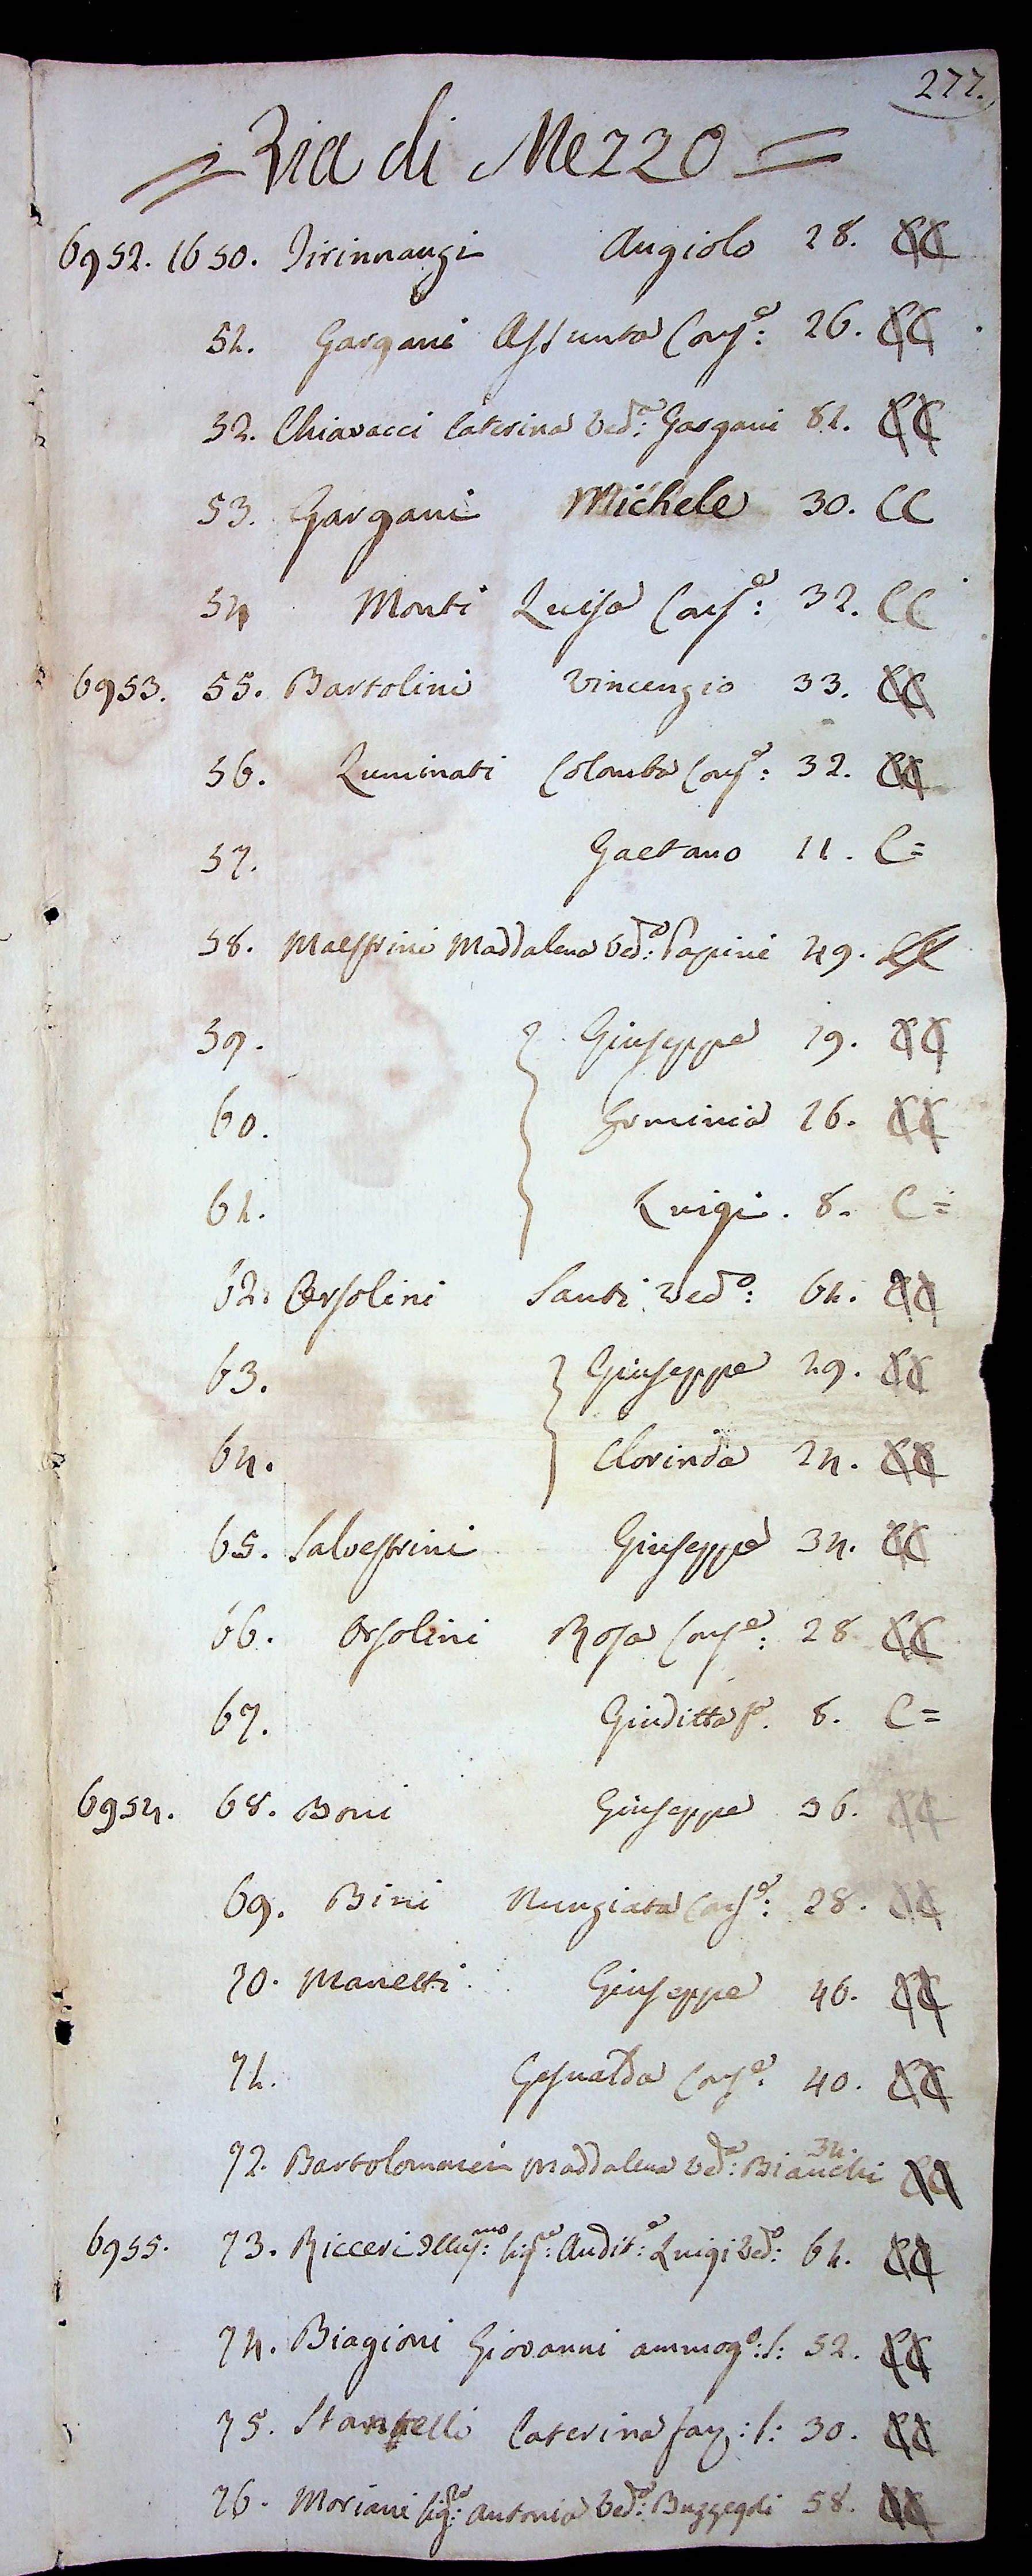 277.
= Via di Mezzo =
6952. 1650. Tirinnanzi Angiolo 28. CC
51. Gargani Assunta Conse: 26. CC
52. Chiavacci Caterina Veda: Gargani 81. CC
53. Gargani Michele 30. CC
54 Monti Luisa Conse: 32. CC
6953. 55. Bartolini Vincenzio 33. CC
56. Luminati Colomba Conse: 32. CC
57. Gaetano 11. C=
58. Maestrini Maddalena Veda: Papini 49. CC
59. Giuseppe 19. CC
60. Erminia 16. CC
61. Luigi. 8. C=
62. Orsolini Santi Vedo: 61. CC
63. Giuseppe 29. CC
64. Clorinda 24. CC
65. Salvestrini Giuseppe 34. CC
66. Orsolini Rosa Conse: 28 CC
67. Giuditta fa. 8. C=
6954. 68. Boni Giuseppe 36. CC
69. Bini Nunziata Conse: 28. CC
70. Manetti Giuseppe 46. CC
71. Gesualda Conse: 40. CC
72. Bartolommei Maddalena Veda: Bianchi 34. CC
6955. 73. Ricceri Illusmo: Sige: Audite: Luigi Vedo: 61. CC
74. Biagioni Giovanni ammogo: S: 52. CC
75. Caterina fan: S: 30. CC
76. Moriani Siga: Antonia Veda: 58. CC